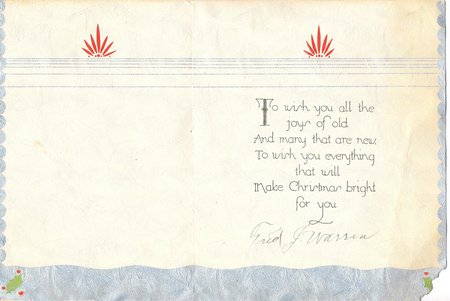 To wish you all the
joys of old
And many that are new,
To wish you everything
that will
Make Christmas bright
for you
Fred J. Warren